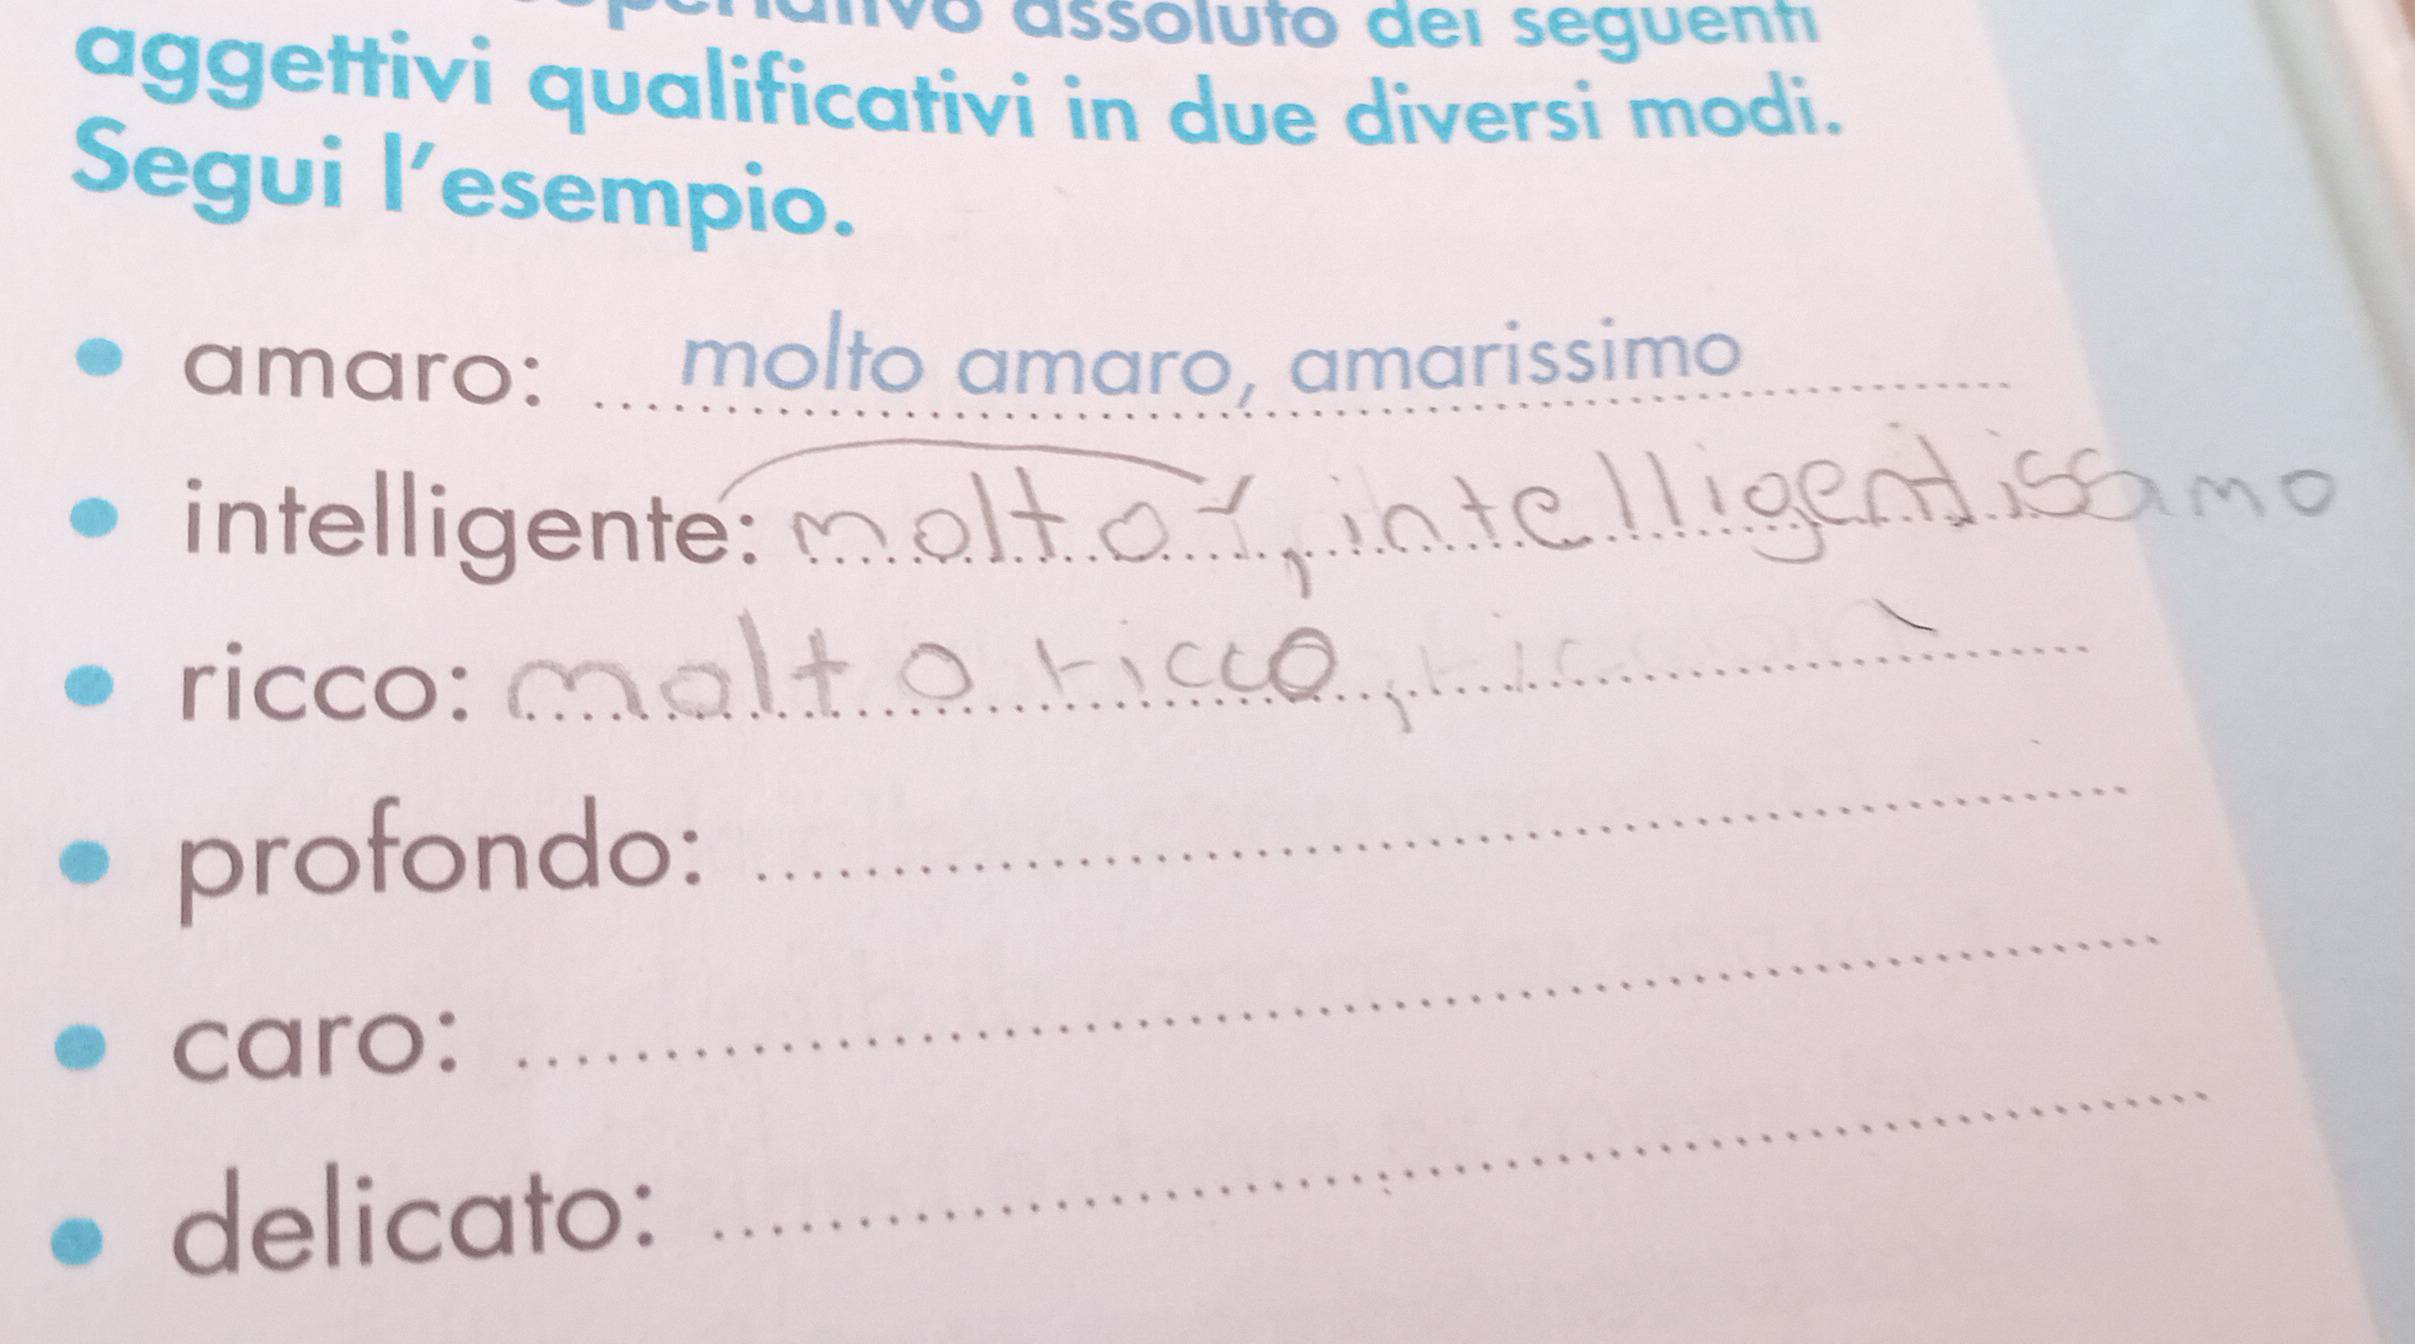 assoluto dei seguenti
aggettivi qualificativi in due diversi modi.
Segui l'esempio.
• amaro: molto amaro, amarissimo
• intelligente: molto , intelligentissimo
• ricco: molto ricco, ric
• profondo:
• caro:
• delicato: